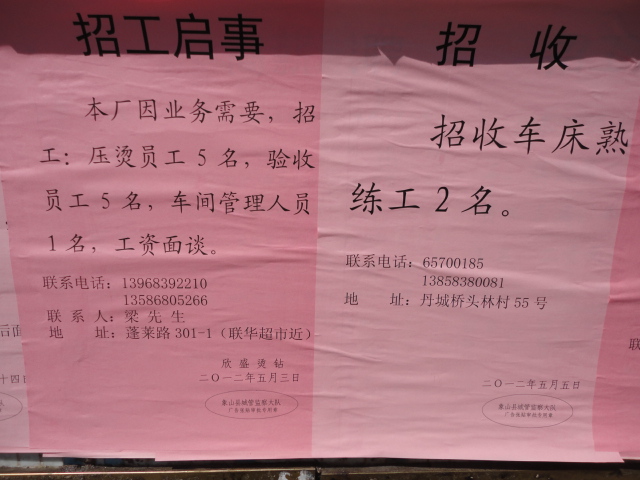 招工启事
本厂因业务需要，招
工：压烫员工5名，验收
员工5名，车间管理人员
1名，工资面谈。
联系电话：13968392210
13586805266
联系人：梁先生
地址：蓬莱路301-1（联华超市近）
欣盛烫钻
二〇一二年五月三日
象山县城管监察大队
广告张贴审批专用章
招收
招收车床熟
练工2名。
联系电话：65700185
13858380081
地址：丹城桥头林村55号
二〇一二年五月五日
象山县城管监察大队
广告张贴审批专用章
后面
十四日
联